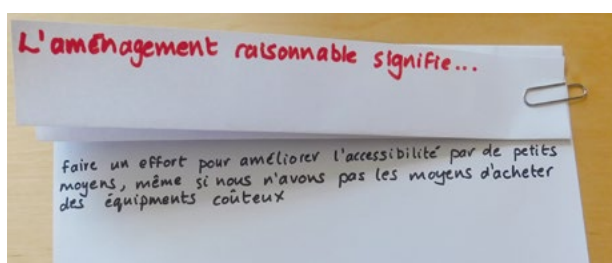 L'aménagement raisonnable signifie...
faire un effort pour améliorer l'accessibilité par de petits
moyens, même si nous n'avons pas les moyens d'acheter
des équipments coûteux